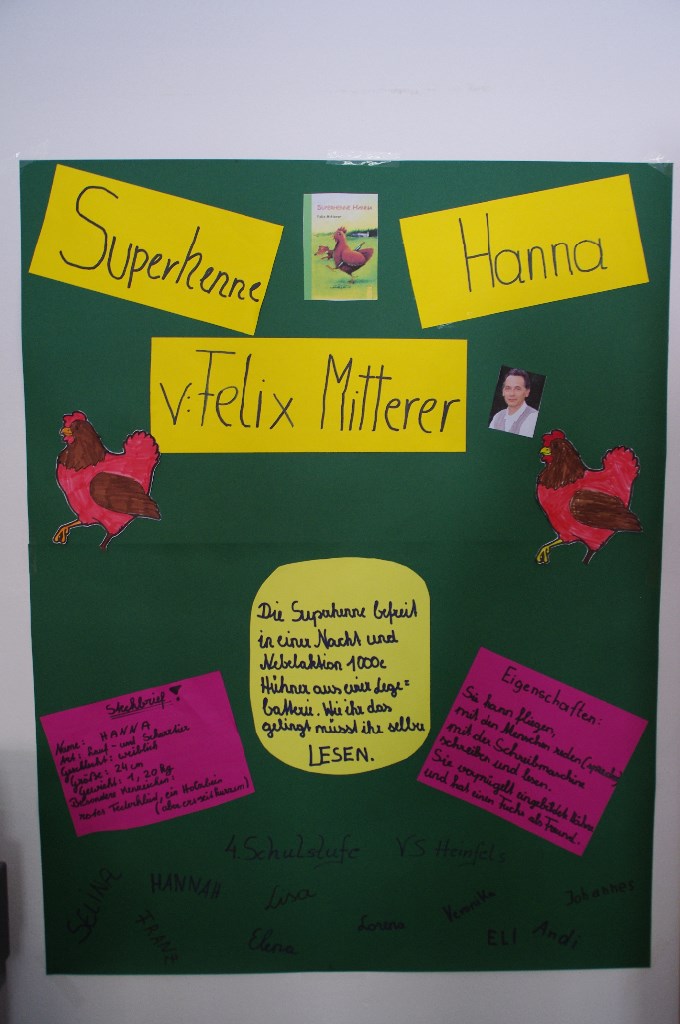 Superhenne
Hanna
SUPERHENNE HANNA
Felix Mitterer
v: Felix Mitterer
Die Superhenne befreit
in einer Nacht und
Nebelaktion 1000e
Hühner aus einer Lege=
batterie. Wie ihr das
gelingt müsst ihr selber
LESEN.
Steckbrief:
Name: HANNA
Art: Lauf- und Scharrtier
Geschlecht: weiblich
Größe: 24 cm
Gewicht: 1,20 kg
Besondere Kennzeichen:
rotes Federkleid, ein Holzbein
Eigenschaften:
Sie kann fliegen,
mit den Menschen reden (sprechen)
mit der Schreibmaschine
schreiben und lesen.
Sie verprügelt eingebildete Hähne
und hat einen Fuchs als Freund.
4. Schulstufe VS Heinfels
SELINA
HANNAH
FRANZ
Lisa
Elena
Lorena
Veronika
ELI
Andi
Johannes